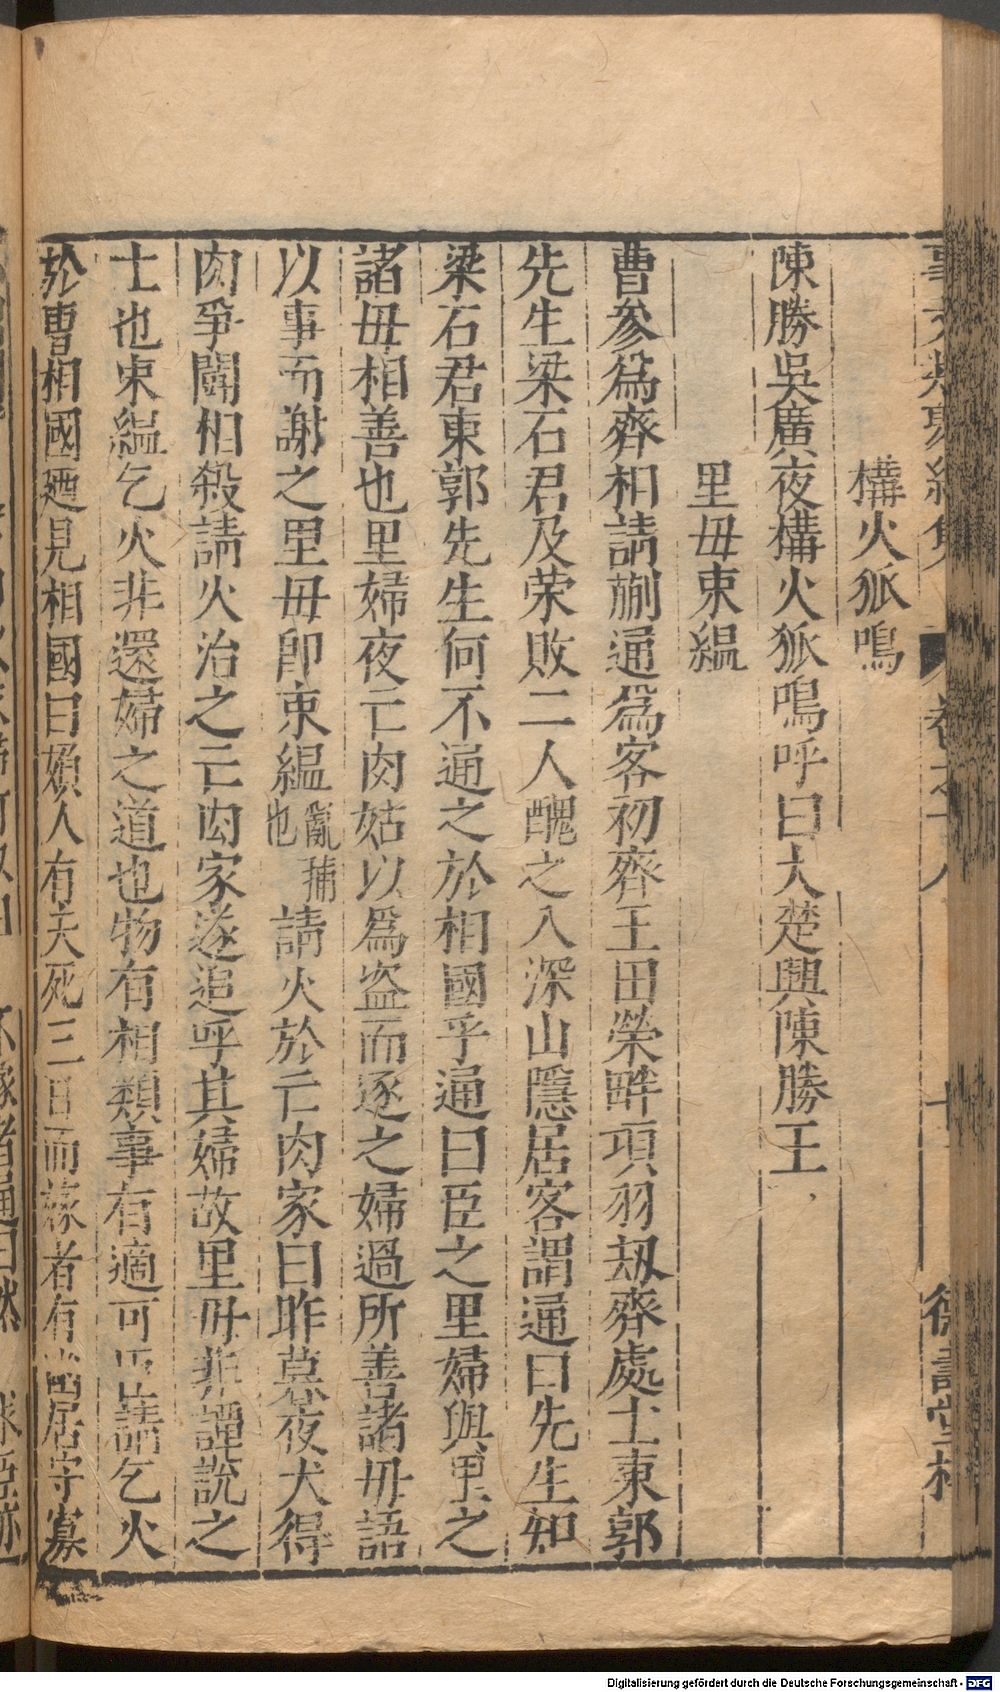 構火狐鳴
陳勝吳廣夜構火狐鳴呼曰大楚興陳勝王
里毋束緼
曹參爲齊相請蒯通爲客初齊王田榮畔項羽刼齊處士東郭
先生梁石君及荣敗二人醜之入深山隱居客謂通曰先生知
梁石君東郭先生何不通之於相國乎通曰臣之里婦與里之
諸毋相善也里婦夜亡肉姑以爲盗而逐之婦過所善諸毋語
以事而謝之里毋即束緼亂蔴也請火於亡肉家曰昨暮夜犬得
肉爭鬭相殺請火治之亡肉家遂追呼其婦故里毋非譚説之
士也束緼乞火非還婦之道也物有相類事有適可臣請乞火
於曹相國廼見相國曰婦人有夫死三日而嫁者有幽居守寡
德壽堂梓
Digitalisierung gefördert durch die Deutsche Forschungsgemeinschaft - DFG